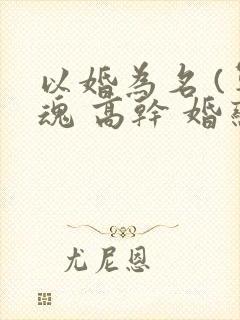 以婚為名 (
魂 高幹 婚
尤尼恩